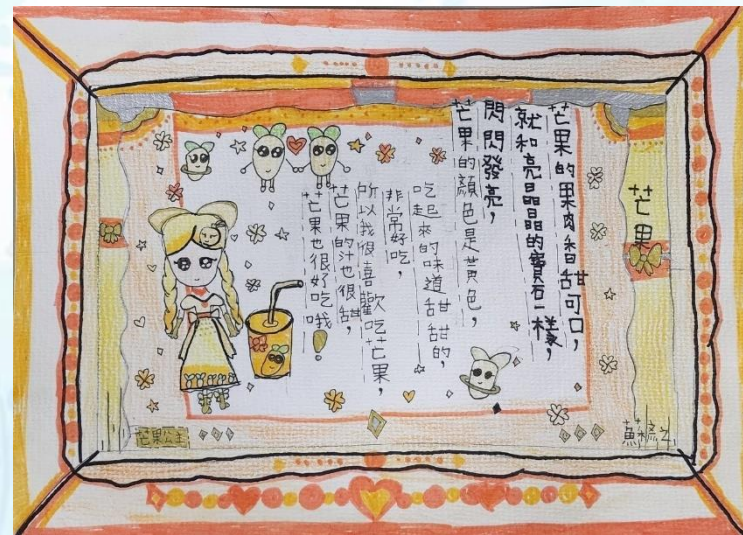 芒果
芒果的果肉香甜可口，
就和亮晶晶的寶石一樣，
閃閃發亮，
芒果的顏色是黃色，
吃起來的味道甜甜的，
非常好吃，
所以我很喜歡吃芒果，
芒果的汁也很甜，
芒果也很好吃哦！
芒果公主